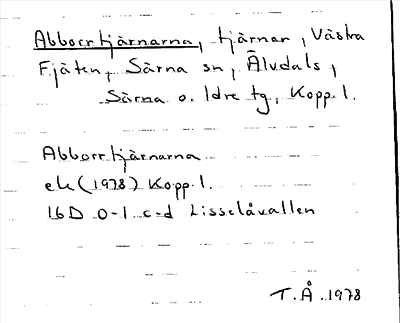 Abborrtjärnarna, tjärnar, Västra
Fjäten, Särna sn, Älvdals,
Särna o. Idre tg, Kopp. l.
Abborrtjärnarna
ek (1978) Kopp. l.
16D 0-1 c-d Lisselåvallen
T.Å. 1978